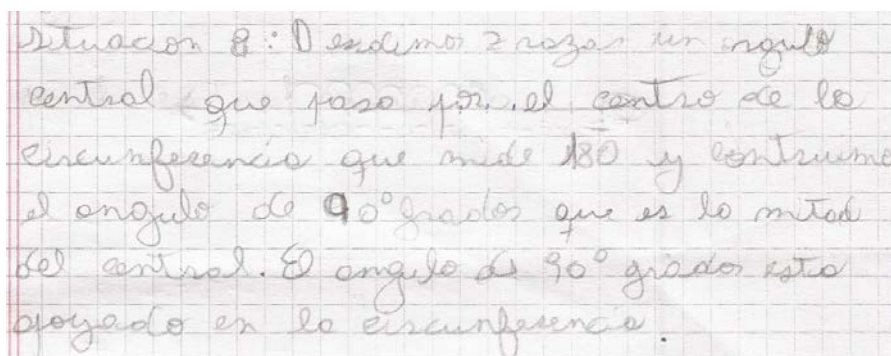 Situacion 8: Desidimos trazar un angulo
central que pasa por el centro de la
circunferencia que mide 180 y contruimo
el angulo de 90° grados que es la mitad
del central. El angulo de 90° grados esta
apoyado en la circunferencia.